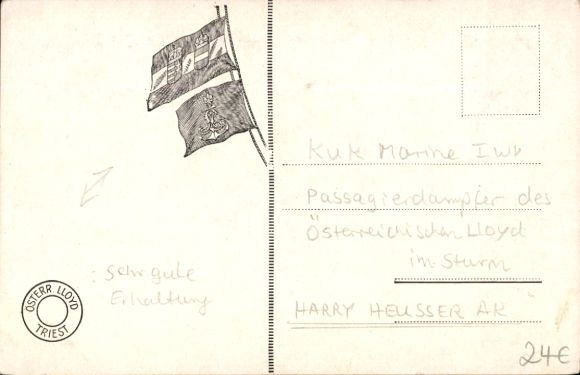 : Sehr gute
Erhaltung
ÖSTERR. LLOYD
TRIEST
KuK Marine I WK
Passagierdampfer des
Österreichischen Lloyd
im Sturm
HARRY HEUSSER AK
24€